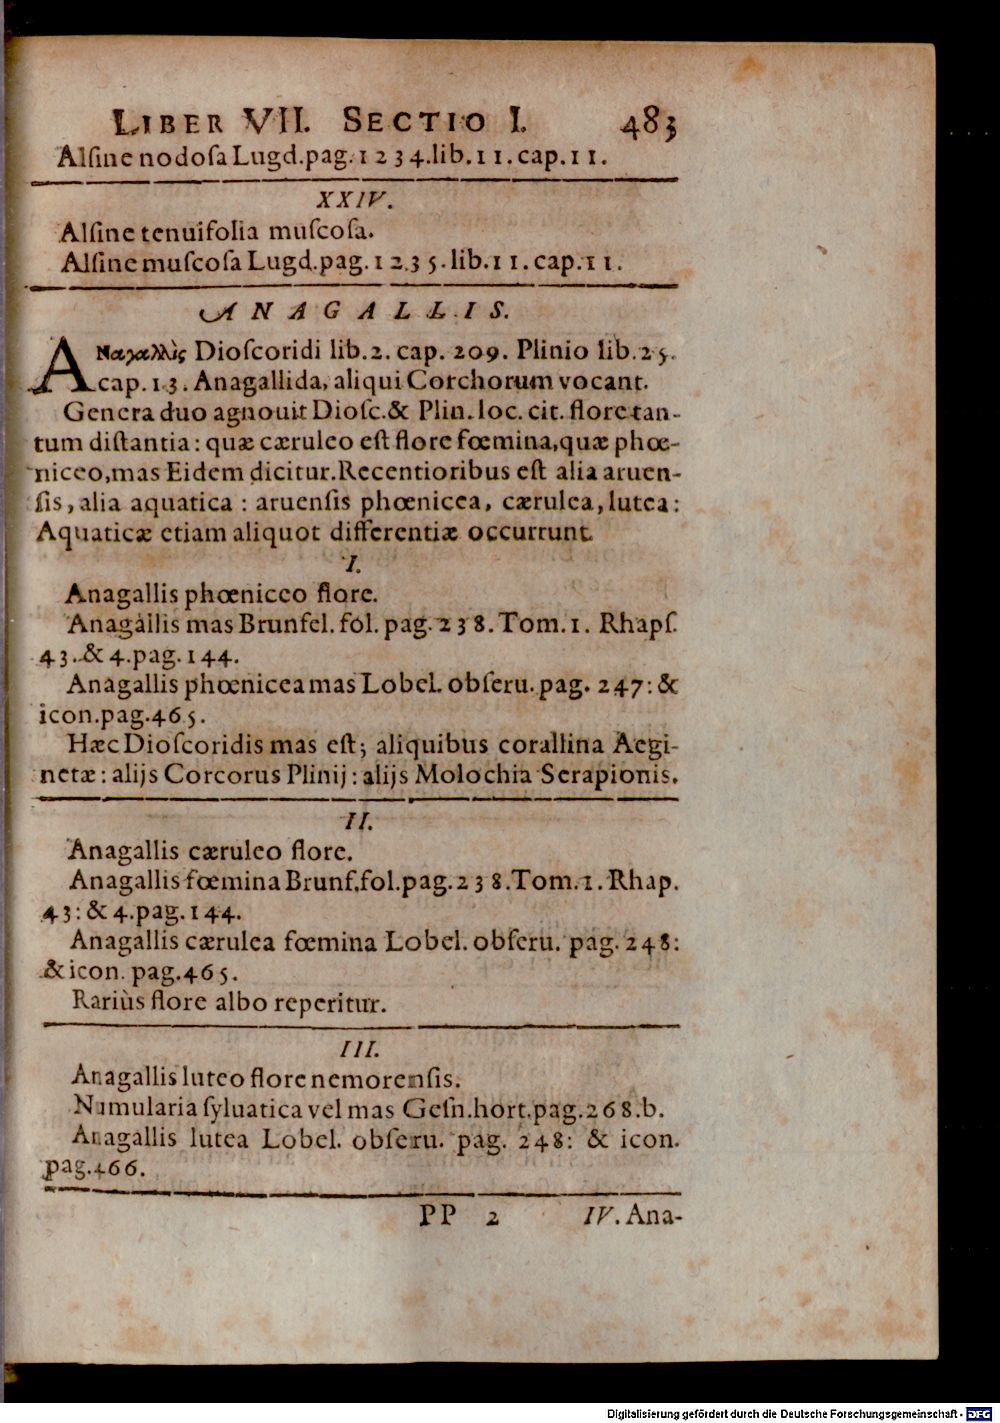 LIBER VII. SECTIO I. 483
Alſine nodoſa Lugd.pag.1234.lib.11.cap.11.
XXIV.
Alſine tenuifolia muſcoſa.
Alſine muſcoſa Lugd.pag.1235.lib.11.cap.11.
ANAGALLIS.
ΑΝαγαλλὶς Dioſcoridi lib.2. cap. 209. Plinio lib.25.
cap.13. Anagallida, aliqui Corchorum vocant.
Genera duo agnouit Dioſc.& Plin. loc. cit. flore tan-
tum diſtantia: quæ cæruleo eſt flore fœmina, quæ phœ-
niceo, mas Eidem dicitur. Recentioribus eſt alia aruen-
ſis, alia aquatica: aruenſis phœnicea, cærulea, lutea:
Aquaticæ etiam aliquot differentiæ occurrunt.
I.
Anagallis phœniceo flore.
Anagallis mas Brunfel. fol. pag. 238. Tom.1. Rhapſ.
43. & 4.pag.144.
Anagallis phœnicea mas Lobel. obſeru. pag. 247: &
icon.pag.465.
Hæc Dioſcoridis mas eſt; aliquibus corallina Aegi-
netæ: alijs Corcorus Plinij: alijs Molochia Serapionis.
II.
Anagallis cæruleo flore.
Anagallis fœmina Brunf.fol.pag.238.Tom.1. Rhap.
43: & 4.pag.144.
Anagallis cærulea fœmina Lobel. obſeru. pag. 248:
& icon. pag.465.
Rariùs flore albo reperitur.
III.
Anagallis luteo flore nemorenſis.
Numularia ſyluatica vel mas Geſn.hort.pag.268.b.
Anagallis lutea Lobel. obſeru. pag. 248: & icon.
pag.466.
PP 2 IV. Ana-
Digitalisierung gefördert durch die Deutsche Forschungsgemeinschaft - DFG